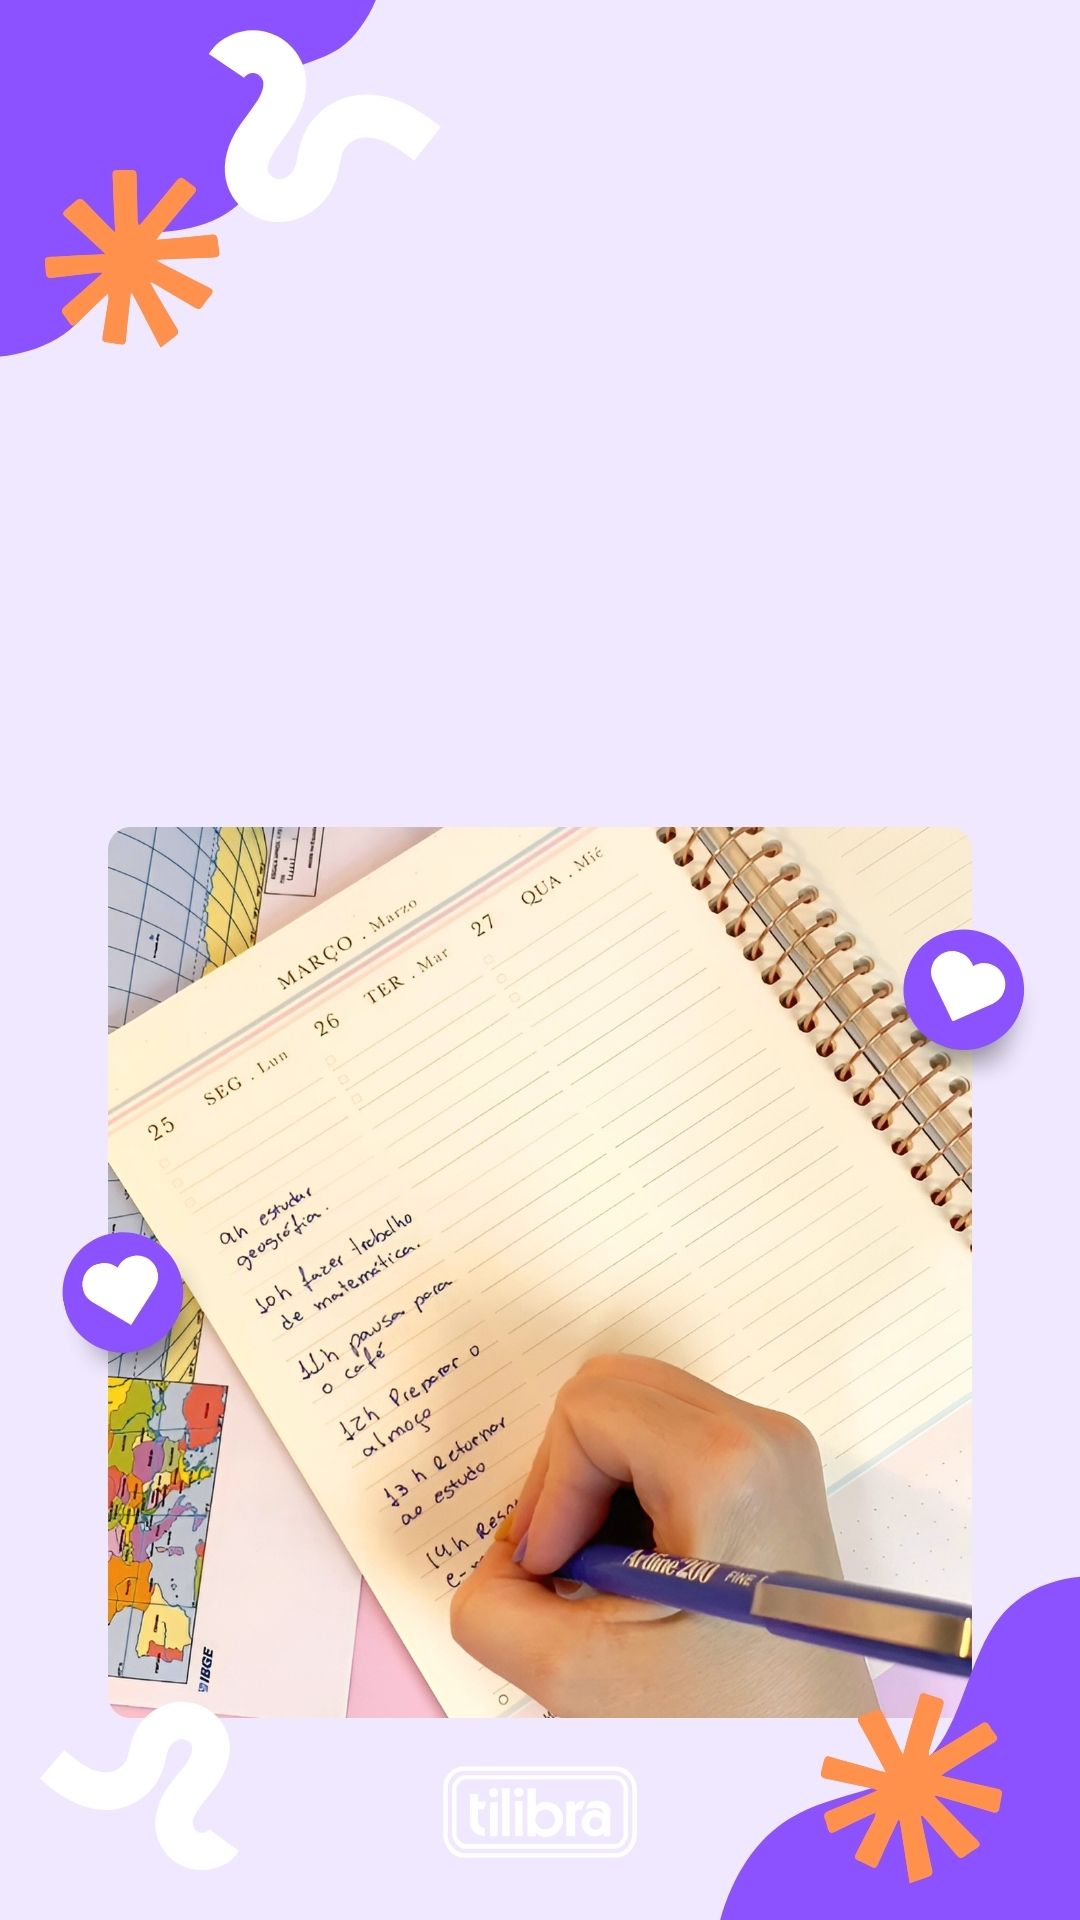 MARÇO . Marzo
25 SEG . Lun
26 TER . Mar
27 QUA . Mié
9h estudar
geografia.
10h fazer trabalho
de matemática.
11h pausa para
o café
12h Preparar o
almoço
13h Retornar
ao estudo
14h Resp
e-
Artline 200 FINE
IBGE
tilibra